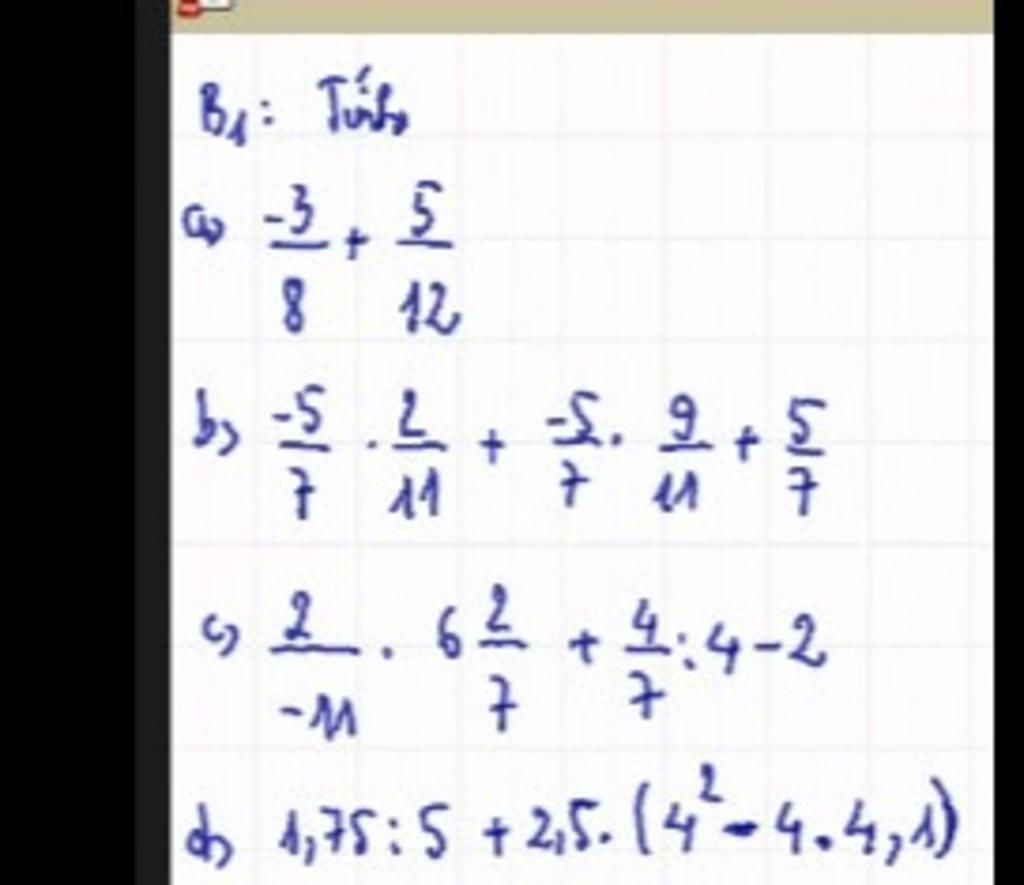 B1: Tính
a) -3/8 + 5/12
b) -5/7 . 2/11 + -5/7 . 9/11 + 5/7
c) 2/-11 . 6 2/7 + 4/7 : 4 - 2
d) 1,75 : 5 + 2,5 . (4² - 4 . 4,1)